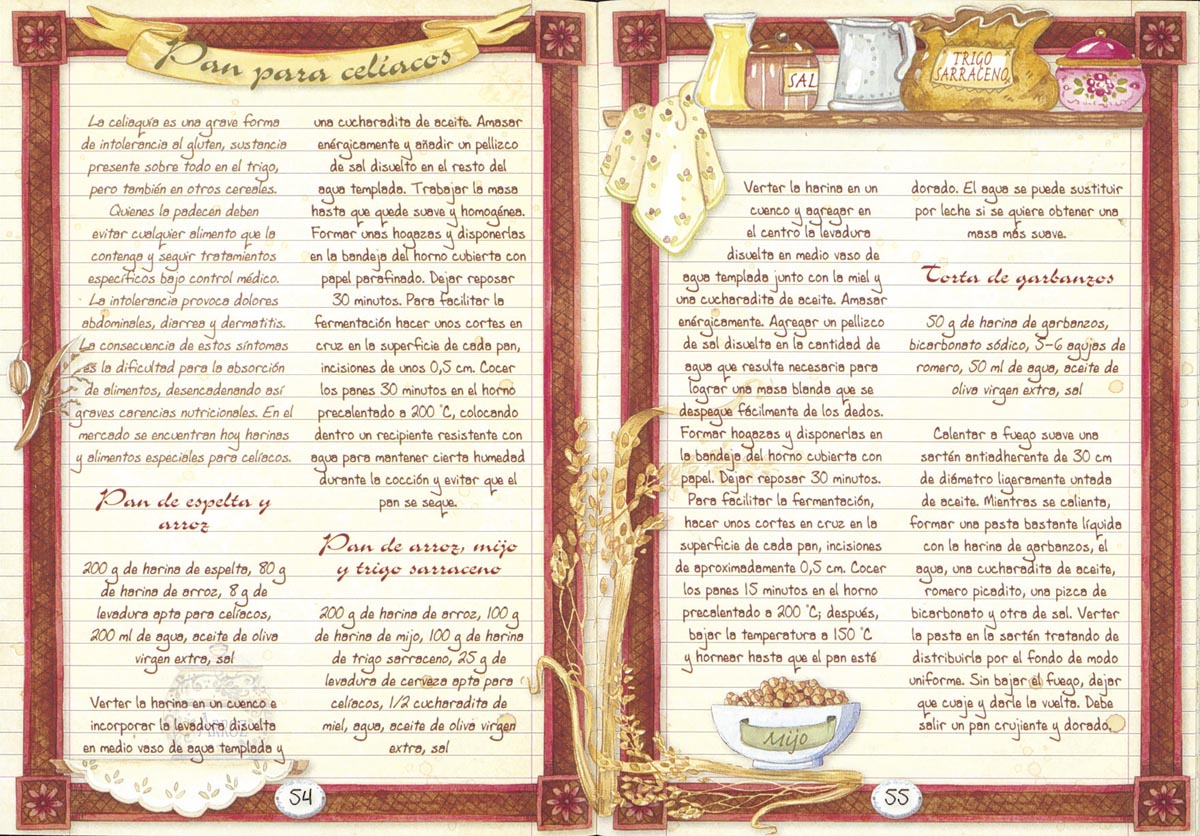 Pan para celíacos
La celiaquía es una grave forma
de intolerancia al gluten, sustancia
presente sobre todo en el trigo,
pero también en otros cereales.
Quienes la padecen deben
evitar cualquier alimento que la
contenga y seguir tratamientos
específicos bajo control médico.
La intolerancia provoca dolores
abdominales, diarrea y dermatitis.
La consecuencia de estos síntomas
es la dificultad para la absorción
de alimentos, desencadenando así
graves carencias nutricionales. En el
mercado se encuentran hoy harinas
y alimentos especiales para celíacos.
Pan de espelta y
arroz
200 g de harina de espelta, 80 g
de harina de arroz, 8 g de
levadura apta para celíacos,
200 ml de agua, aceite de oliva
virgen extra, sal
Verter la harina en un cuenco e
incorporar la levadura disuelta
en medio vaso de agua templada y
Arroz
una cucharadita de aceite. Amasar
enérgicamente y añadir un pellizco
de sal disuelto en el resto del
agua templada. Trabajar la masa
hasta que quede suave y homogénea.
Formar unas hogazas y disponerlas
en la bandeja del horno cubierta con
papel parafinado. Dejar reposar
30 minutos. Para facilitar la
fermentación hacer unos cortes en
cruz en la superficie de cada pan,
incisiones de unos 0,5 cm. Cocer
los panes 30 minutos en el horno
precalentado a 200 °C, colocando
dentro un recipiente resistente con
agua para mantener cierta humedad
durante la cocción y evitar que el
pan se seque.
Pan de arroz, mijo
y trigo sarraceno
200 g de harina de arroz, 100 g
de harina de mijo, 100 g de harina
de trigo sarraceno, 25 g de
levadura de cerveza apta para
celíacos, 1/2 cucharadita de
miel, agua, aceite de oliva virgen
extra, sal
54
SAL
TRIGO
SARRACENO
Verter la harina en un
cuenco y agregar en
el centro la levadura
disuelta en medio vaso de
agua templada junto con la miel y
una cucharadita de aceite. Amasar
enérgicamente. Agregar un pellizco
de sal disuelta en la cantidad de
agua que resulte necesaria para
lograr una masa blanda que se
despegue fácilmente de los dedos.
Formar hogazas y disponerlas en
la bandeja del horno cubierta con
papel. Dejar reposar 30 minutos.
Para facilitar la fermentación,
hacer unos cortes en cruz en la
superficie de cada pan, incisiones
de aproximadamente 0,5 cm. Cocer
los panes 15 minutos en el horno
precalentado a 200 °C; después,
bajar la temperatura a 150 °C
y hornear hasta que el pan esté
Mijo
dorado. El agua se puede sustituir
por leche si se quiere obtener una
masa más suave.
Torta de garbanzos
50 g de harina de garbanzos,
bicarbonato sódico, 5-6 agujas de
romero, 50 ml de agua, aceite de
oliva virgen extra, sal
Calentar a fuego suave una
sartén antiadherente de 30 cm
de diámetro ligeramente untada
de aceite. Mientras se calienta,
formar una pasta bastante líquida
con la harina de garbanzos, el
agua, una cucharadita de aceite,
romero picadito, una pizca de
bicarbonato y otra de sal. Verter
la pasta en la sartén tratando de
distribuirla por el fondo de modo
uniforme. Sin bajar el fuego, dejar
que cuaje y darle la vuelta. Debe
salir un pan crujiente y dorado.
55